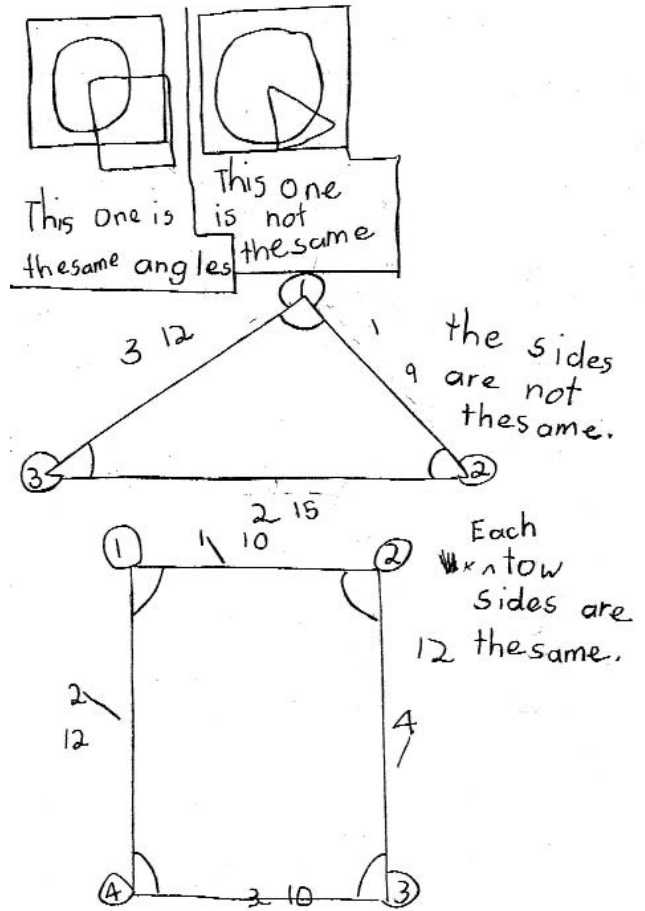 This one is
thesame angles
This one
is not
thesame
1
3 12
1
9
the sides
are not
thesame.
3
2
2 15
1
1 10
2
Each
tow
sides are
12 thesame.
2
12
4
4
3 10
3